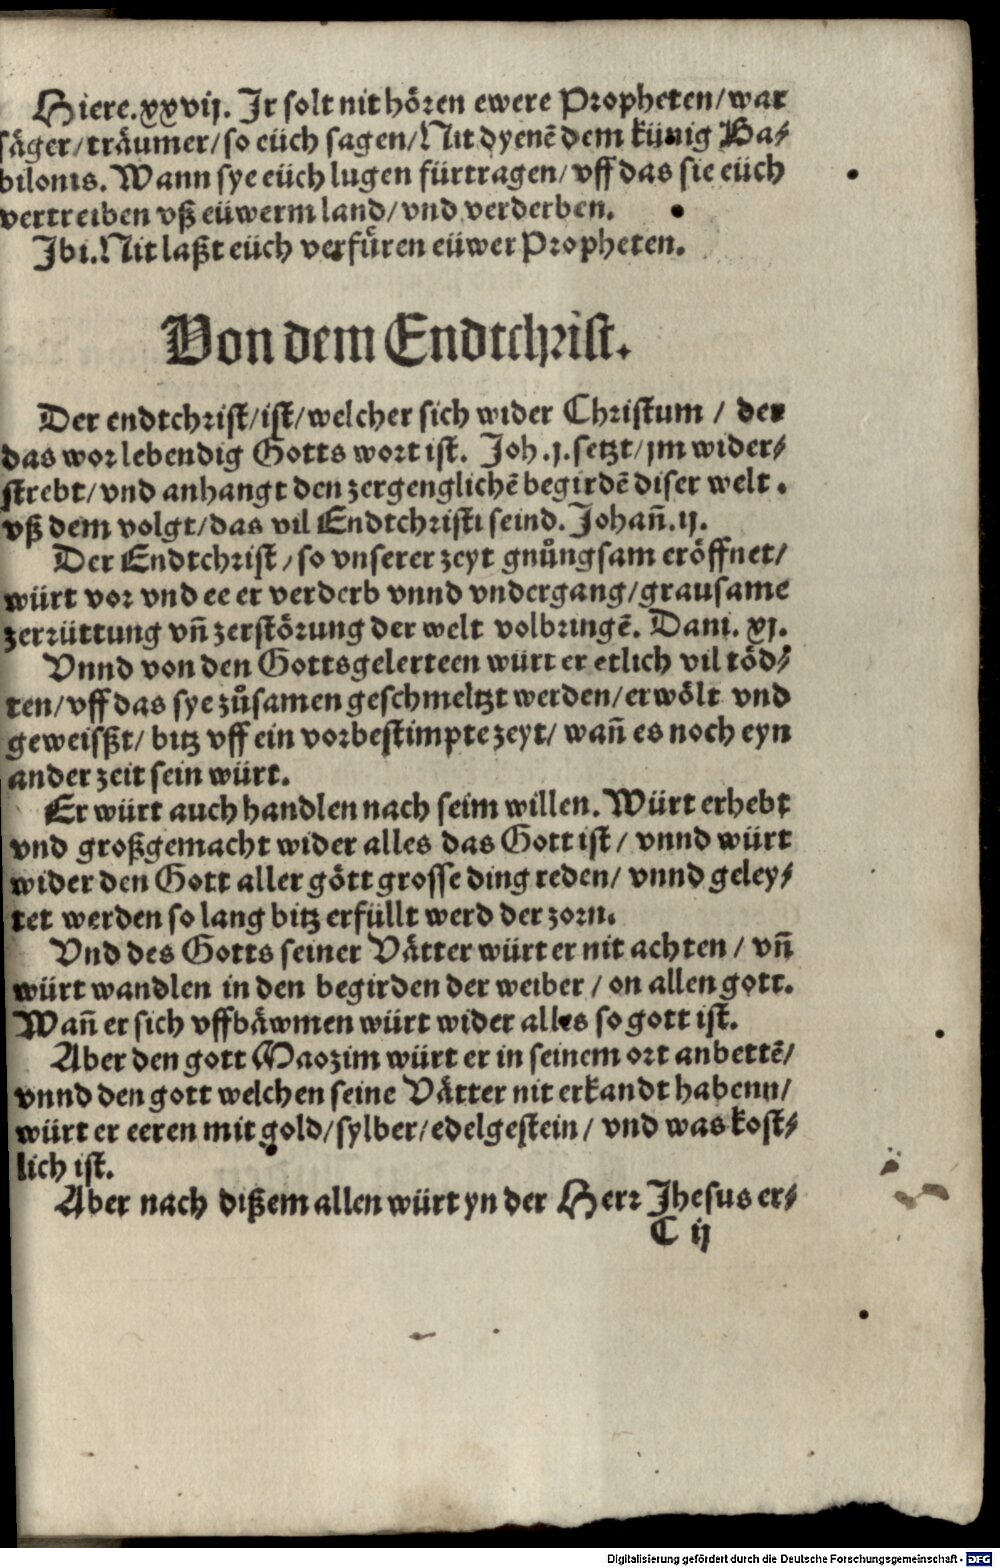 Hiere.xxvij. Ir solt nit hören ewere Propheten/ war
säger/ träumer/ so eüch sagen/ Nit dyenē dem künig Ba⸗
bilonis. Wann sye eüch lugen fürtragen/ vff das sie eüch
vertreiben vß eüwerm land/ vnd verderben.
Ibi. Nit laßt eüch verfüren eüwer Propheten.
Von dem Endtchrist.
Der endtchrist/ ist/ welcher sich wider Christum / der
das wor lebendig Gotts wort ist. Joh.j. setzt/ jm wider⸗
strebt/ vnd anhangt den zergenglichē begirdē diser welt.
vß dem volgt/ das vil Endtchristi seind. Johañ.ij.
Der Endtchrist/ so vnserer zeyt gnůngsam eröffnet/
würt vor vnd ee er verderb vnnd vndergang/ grausame
zerrüttung vñ zerstörung der welt volbringē. Dani. xj.
Vnnd von den Gottsgelerteen würt er etlich vil töd⸗
ten/ vff das sye zůsamen geschmeltzt werden/ erwölt vnd
geweisßt/ bitz vff ein vorbestimpte zeyt/ wañ es noch eyn
ander zeit sein würt.
Er würt auch handlen nach seim willen. Würt erhebt
vnd großgemacht wider alles das Gott ist/ vnnd würt
wider den Gott aller gött grosse ding reden/ vnnd geley⸗
tet werden so lang bitz erfüllt werd der zorn.
Vnd des Gotts seiner Vätter würt er nit achten/ vñ
würt wandlen in den begirden der weiber/ on allen gott.
Wañ er sich vffbäwmen würt wider alles so gott ist.
Aber den gott Maozim würt er in seinem ort anbettē/
vnnd den gott welchen seine Vätter nit erkandt habenn/
würt er eeren mit gold/ sylber/ edelgestein/ vnd was kost⸗
lich ist.
Aber nach dißem allen würt yn der Herr Jhesus er⸗
C ij
Digitalisierung gefördert durch die Deutsche Forschungsgemeinschaft - DFG